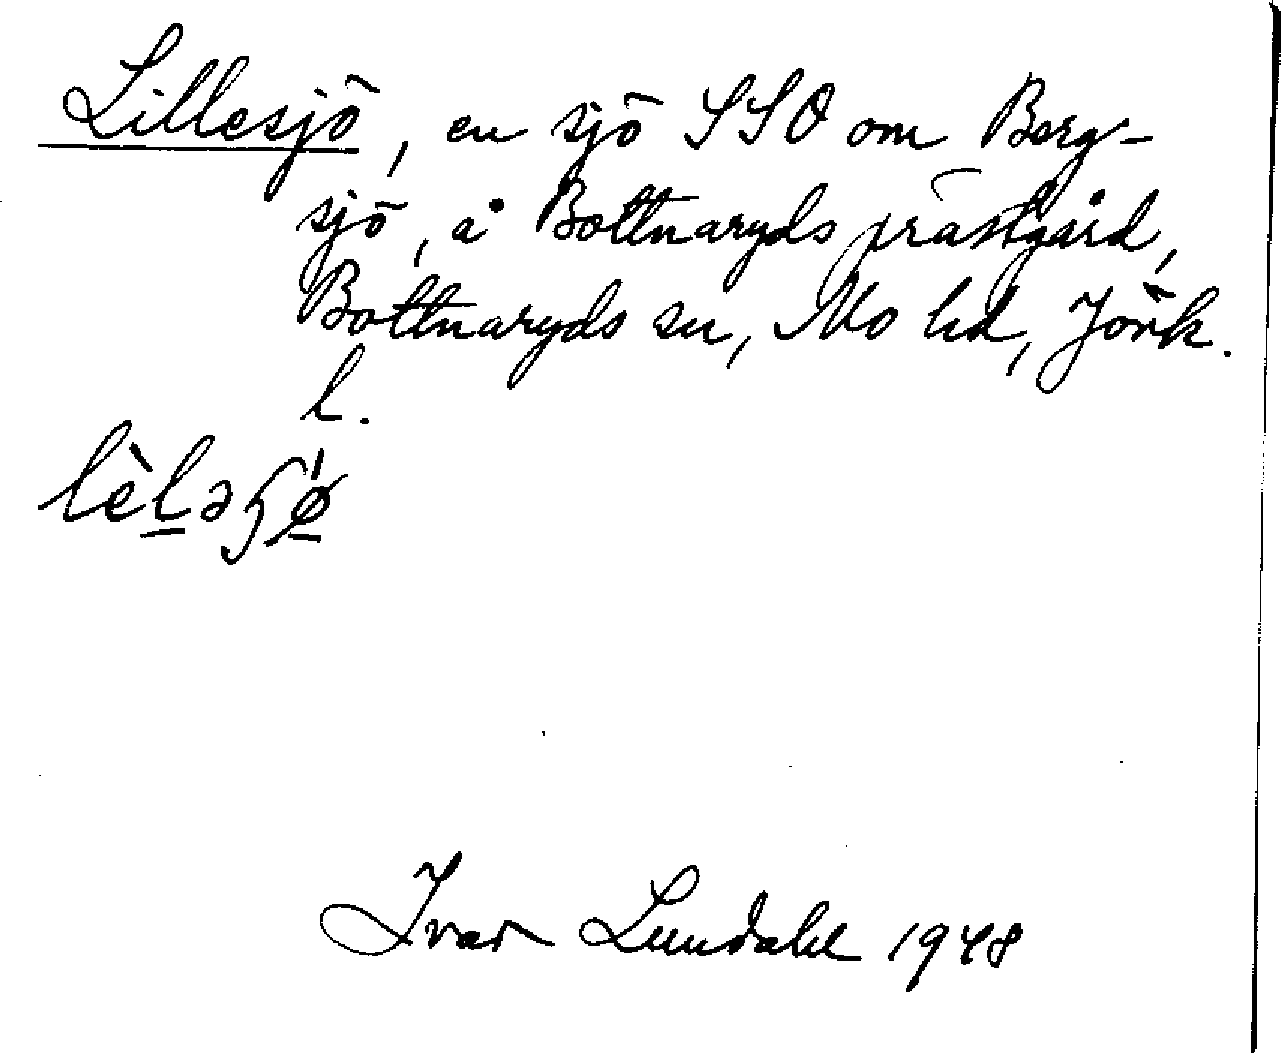 Lillesjö, en sjö SSO om Berg-
sjö, å Bottnaryds prästgård,
Bottnaryds sn, Mo hd, Jönk.
l.
lèləɧǿ
Ivar Lundahl 1948